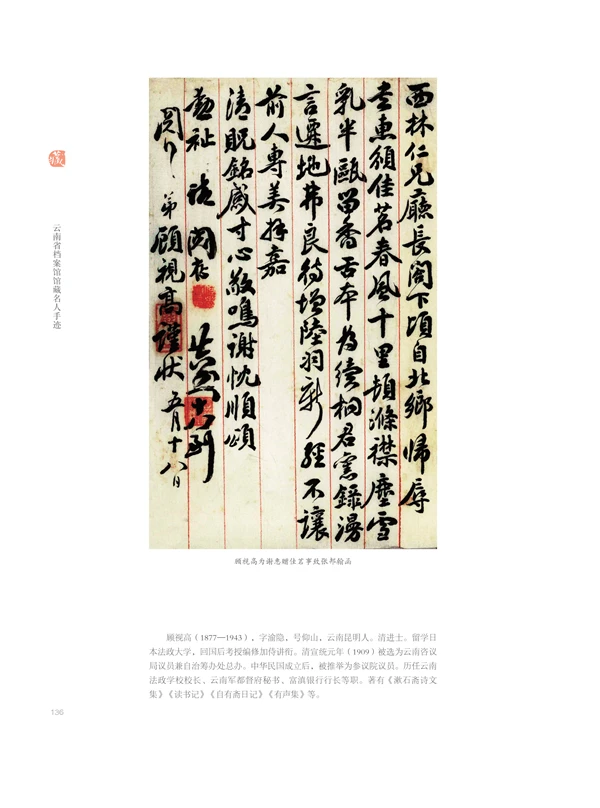 西林仁兄廳長閣下頃自北鄉歸辱
惠頒佳茗春風十里頓滌襟塵雪
乳半甌留香舌本為續桐君錄漫
言地良待增陸羽新經不讓
前人專美拜嘉
清貺銘感寸心敬鳴謝忱順頌
勳祉
弟顧視高謹狀 五月十八日
藏
云南省档案馆馆藏名人手迹
顾视高为谢惠赠佳茗事致张邦翰函
顾视高（1877—1943），字渝隐，号仰山，云南昆明人。清进士。留学日
本法政大学，回国后考授编修加侍讲衔。清宣统元年（1909）被选为云南咨议
局议员兼自治筹办处总办。中华民国成立后，被推举为参议院议员。历任云南
法政学校校长、云南军都督府秘书、富滇银行行长等职。著有《漱石斋诗文
集》《读书记》《自有斋日记》《有声集》等。
136